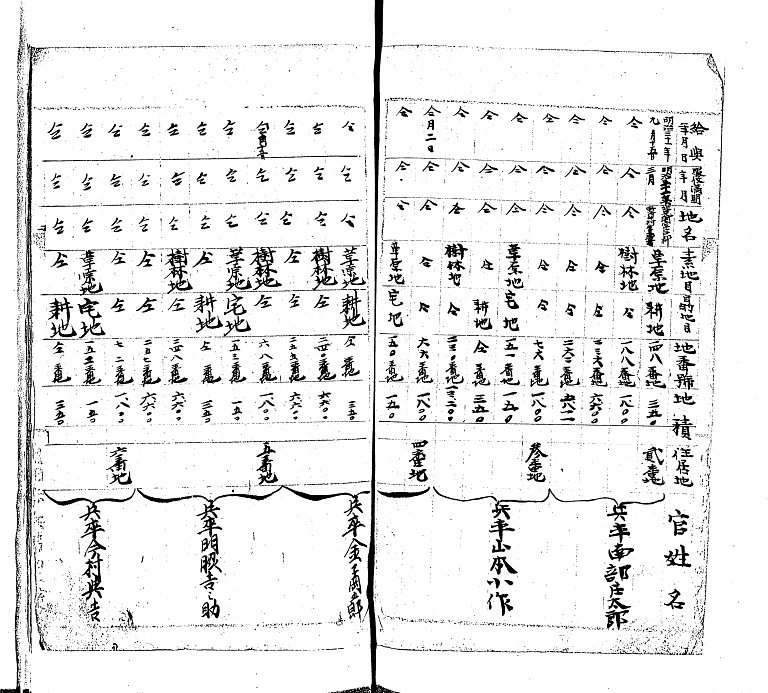 給與年月日 年月 地名 素地目 目的地目 地番號 地積 住居地 官姓名
明治三十一年九月十五日 草原地 耕地 四八番地 三五〇 貳番地
仝 仝 仝 樹林地 仝 一八八番地 一八〇〇
仝 仝 仝 仝 仝 二三六番地 六六〇 兵卒南部庄太郎
仝 仝 仝 仝 仝 二六二番地
仝 仝 仝 仝 仝 七六番地 一八〇〇 参番地
仝 仝 仝 草原地 宅地 五一番地 一五〇
仝 仝 仝 仝 耕地 仝 三五〇 兵卒山本小作
仝 仝 仝 樹林地 仝 二三〇番地 一三二〇
仝月二日 仝 仝 仝 仝 六六番地 一八〇〇 四番地
仝 仝 仝 草原地 宅地 五〇番地 一五〇
仝 仝 仝 草原地 耕地 仝番地 三五〇 兵卒金
仝 仝 仝 樹林地 仝 二四〇番地 六六〇
仝 仝 仝 仝 仝 二五九番地 六六〇
仝 仝 樹林地 仝 六八番地 一八〇〇 五番地
仝 仝 仝 草原地 宅地 五三番地 一五〇
仝 仝 仝 仝 耕地 仝 三五〇 兵卒明眼吉之助
仝 仝 仝 樹林地 仝 二四八番地 六六〇
仝 仝 仝 仝 仝 二五七番地 六六〇
仝 仝 仝 仝 仝 七二番地 一八〇〇 六番地
仝 仝 仝 草原地 宅地 五二番地 一五〇 兵卒今村與吉
仝 仝 仝 仝 耕地 仝番地 三五〇